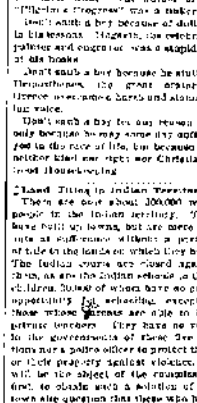 "Pilgrim's Progress" was a tinker
Don't snub a boy because of dull
in his lessons. Hogarth, the celebr
painter and engraver, was a stupid
at his books
Don't snub a boy because he stut
Demosthenes, the great orator
overcame a harsh and stam
ing voice.
Don't snub a boy for any reason
only because he may some day outs
you in the race of life, but because
neither kind nor right nor Christia
Good Housekeeping
Land Titles in Indian Territor
There are now about 300,000 w
people in the Indian territory. T
have built up towns, but are mere
ants at sufferance without a part
of title to the lands on which they b
The Indian courts are closed aga
them, as are the Indian schools to t
children, 30,000 of whom have no
opportunity for schooling, except
those whose parents are able to
private teachers They have no v
in the governments of these five
tions nor a police officer to protect t
or their property against violence.
will be the object of the commiss
first, to obtain such a solution of
town site question that those who h